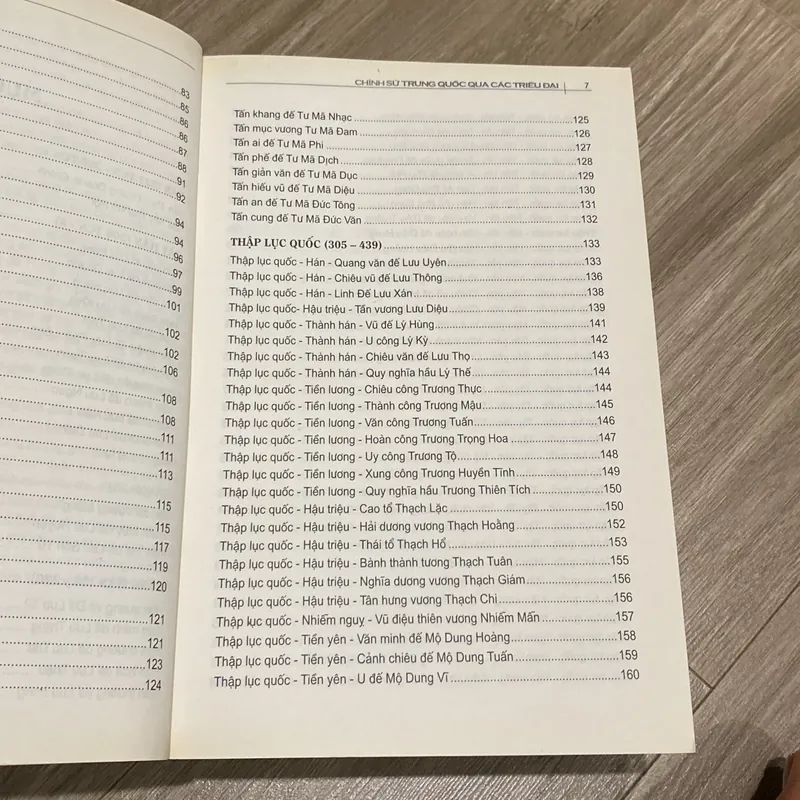 83
85
86
86
87
88
91
92
94
94
96
97
99
101
102
102
106
108
108
111
111
113
115
115
117
119
120
121
121
123
124
CHÍNH SỬ TRUNG QUỐC QUA CÁC TRIỀU ĐẠI 7
Tấn khang đế Tư Mã Nhạc 125
Tấn mục vương Tư Mã Đam 126
Tấn ai đế Tư Mã Phi 127
Tấn phế đế Tư Mã Dịch 128
Tấn giản văn đế Tư Mã Dục 129
Tấn hiếu vũ đế Tư Mã Diệu 130
Tấn an đế Tư Mã Đức Tông 131
Tấn cung đế Tư Mã Đức Văn 132
THẬP LỤC QUỐC (305 – 439) 133
Thập lục quốc - Hán - Quang văn đế Lưu Uyên 133
Thập lục quốc - Hán - Chiêu vũ đế Lưu Thông 136
Thập lục quốc - Hán - Linh Đế Lưu Xán 138
Thập lục quốc- Hậu triệu - Tấn vương Lưu Diệu 139
Thập lục quốc - Thành hán - Vũ đế Lý Hùng 141
Thập lục quốc - Thành hán - U công Lý Kỳ 142
Thập lục quốc - Thành hán - Chiêu văn đế Lưu Thọ 143
Thập lục quốc - Thành hán - Quy nghĩa hầu Lý Thế 144
Thập lục quốc - Tiền lương - Chiêu công Trương Thực 144
Thập lục quốc - Tiền lương - Thành công Trương Mậu 145
Thập lục quốc - Tiền lương - Văn công Trương Tuấn 146
Thập lục quốc - Tiền lương - Hoàn công Trương Trọng Hoa 147
Thập lục quốc - Tiền lương - Uy công Trương Tộ 148
Thập lục quốc - Tiền lương - Xung công Trương Huyền Tĩnh 149
Thập lục quốc - Tiền lương - Quy nghĩa hầu Trương Thiên Tích 150
Thập lục quốc - Hậu triệu - Cao tổ Thạch Lặc 150
Thập lục quốc - Hậu triệu - Hải dương vương Thạch Hoằng 152
Thập lục quốc - Hậu triệu - Thái tổ Thạch Hổ 153
Thập lục quốc - Hậu triệu - Bành thành tương Thạch Tuân 155
Thập lục quốc - Hậu triệu - Nghĩa dương vương Thạch Giám 156
Thập lục quốc - Hậu triệu - Tân hưng vương Thạch Chi 156
Thập lục quốc - Nhiễm ngụy - Vũ điệu thiên vương Nhiễm Mẫn 157
Thập lục quốc - Tiền yên - Văn minh đế Mộ Dung Hoàng 158
Thập lục quốc - Tiền yên - Cảnh chiêu đế Mộ Dung Tuấn 159
Thập lục quốc - Tiền yên - U đế Mộ Dung Vĩ 160